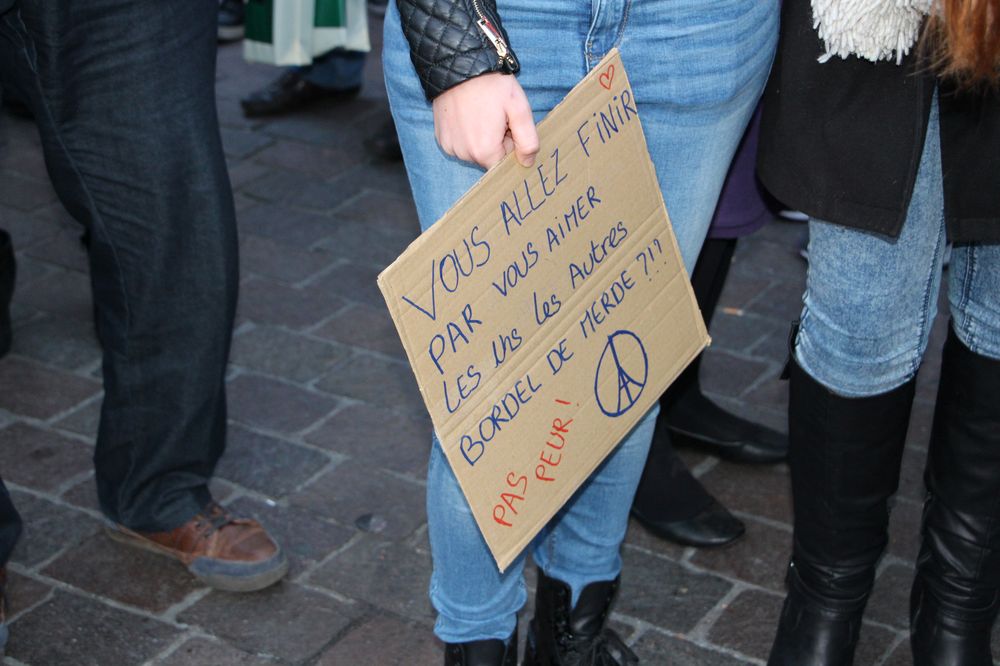 VOUS ALLEZ FINIR
PAR VOUS AIMER
LES UNS LES AUTRES
BORDEL DE MERDE ?!?
PAS
PEUR !